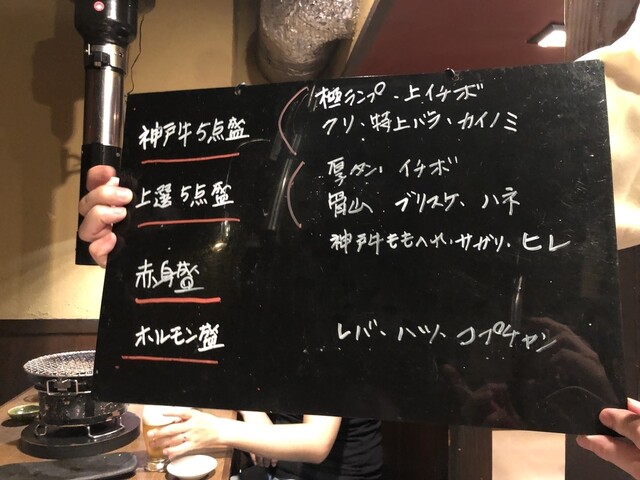 神戸牛5点盛
極ランプ・上イチボ
クリ・特上バラ・カイノミ
上選5点盛
厚タン・イチボ
ブリスケ・ハネ
赤身盛
神戸牛ももへれ・サガリ・ヒレ
ホルモン盛
レバ・ハツ・コプチャン